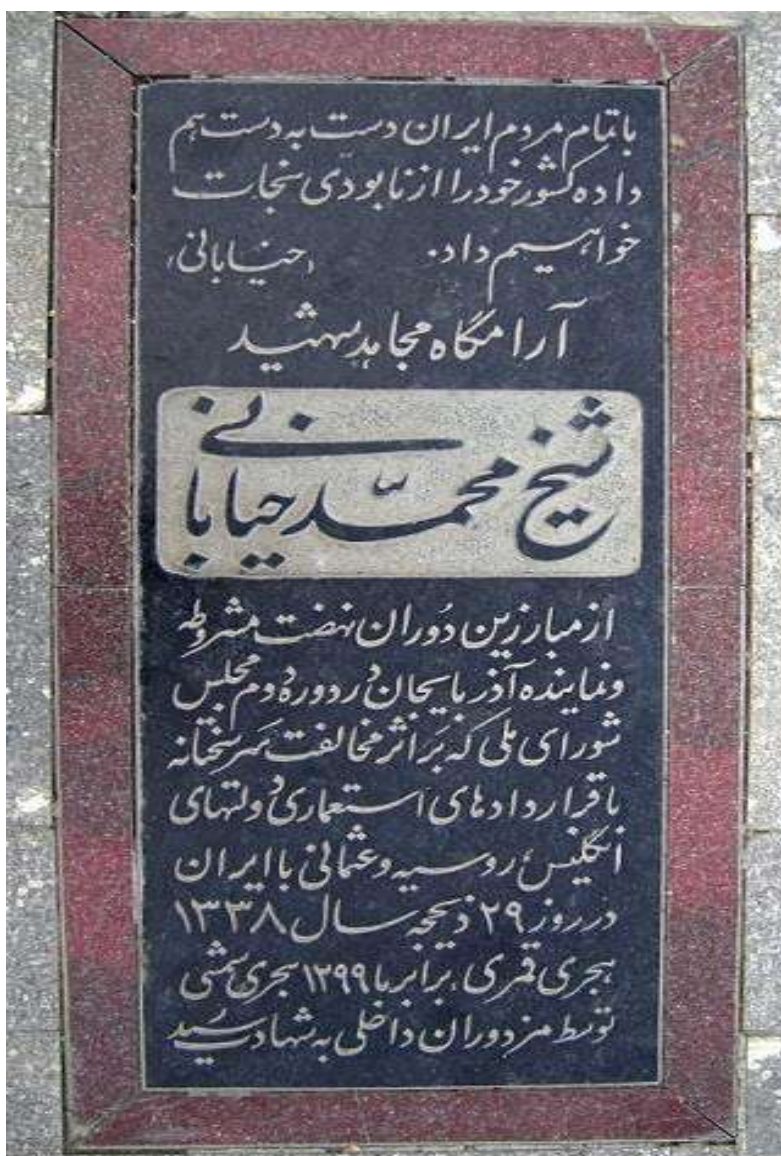 با تمام مردم ایران دست به دست هم
داده کشور خود را از نابودی نجات
خواهیم داد. «خیابانی»
آرامگاه مجاهد شهید
شیخ محمّد خیابانی
از مبارزین دُوران نهضت مشروطه
و نماینده آذربایجان در دورهٔ دوم مجلس
شورای ملی که بَر اثر مخالفت سَرسختانه
با قراردادهای استعماری دولتهای
انگلیس، روسیه و عثمانی با ایران
در روز ۲۹ ذیحجه سال ۱۳۳۸
هجری قمری، برابر با ۱۲۹۹ هجری شمسی
توسط مزدوران داخلی به شهادت رسید